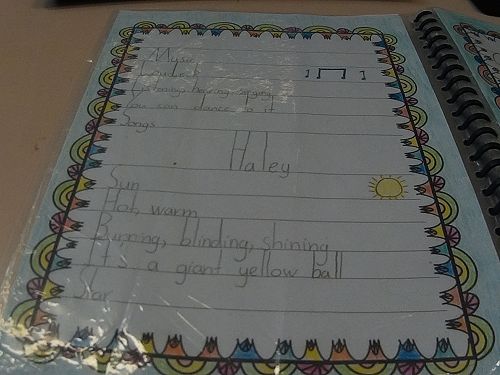 Music
Loud
Listening, hearing, singing
You can dance to it
Songs
Haley
Sun
Hot, warm
Burning, blinding, shining
It's a giant yellow ball
Star